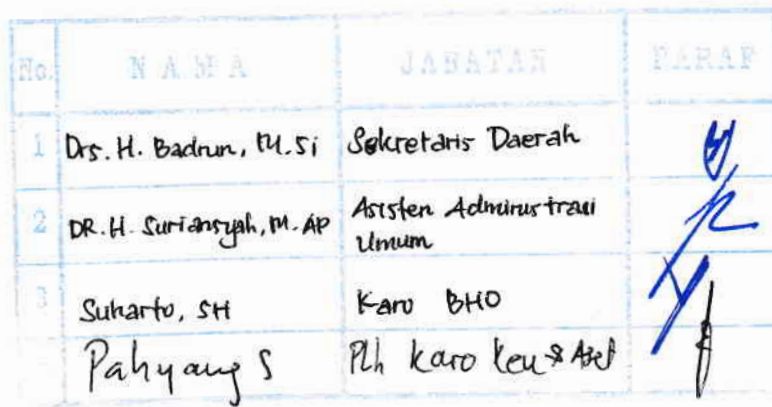 No. NAMA JABATAN PARAF
1 Drs. H. Badrun, M.Si Sekretaris Daerah
2 DR. H. Suriansyah, M.AP Asisten Administrasi
Umum
3 Suharto, SH Karo BHO
Pahyang S Plh Karo Keu & Aset